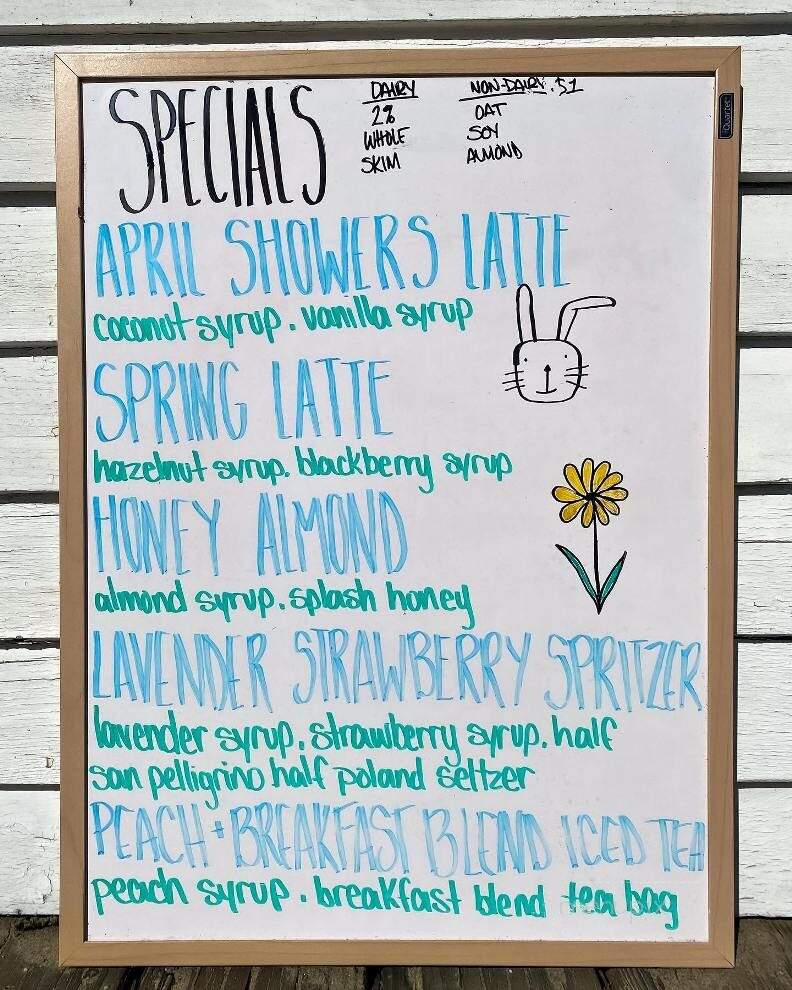 SPECIALS
DAIRY
2%
WHOLE
SKIM
NON-DAIRY . $1
OAT
SOY
ALMOND
Quartet
APRIL SHOWERS LATTE
coconut syrup . vanilla syrup
SPRING LATTE
hazelnut syrup. blackberry syrup
HONEY ALMOND
almond syrup . splash honey
LAVENDER STRAWBERRY SPRITZER
lavender syrup. strawberry syrup. half
san pelligrino half poland seltzer
PEACH + BREAKFAST BLEND ICED TEA
peach syrup . breakfast blend tea bag